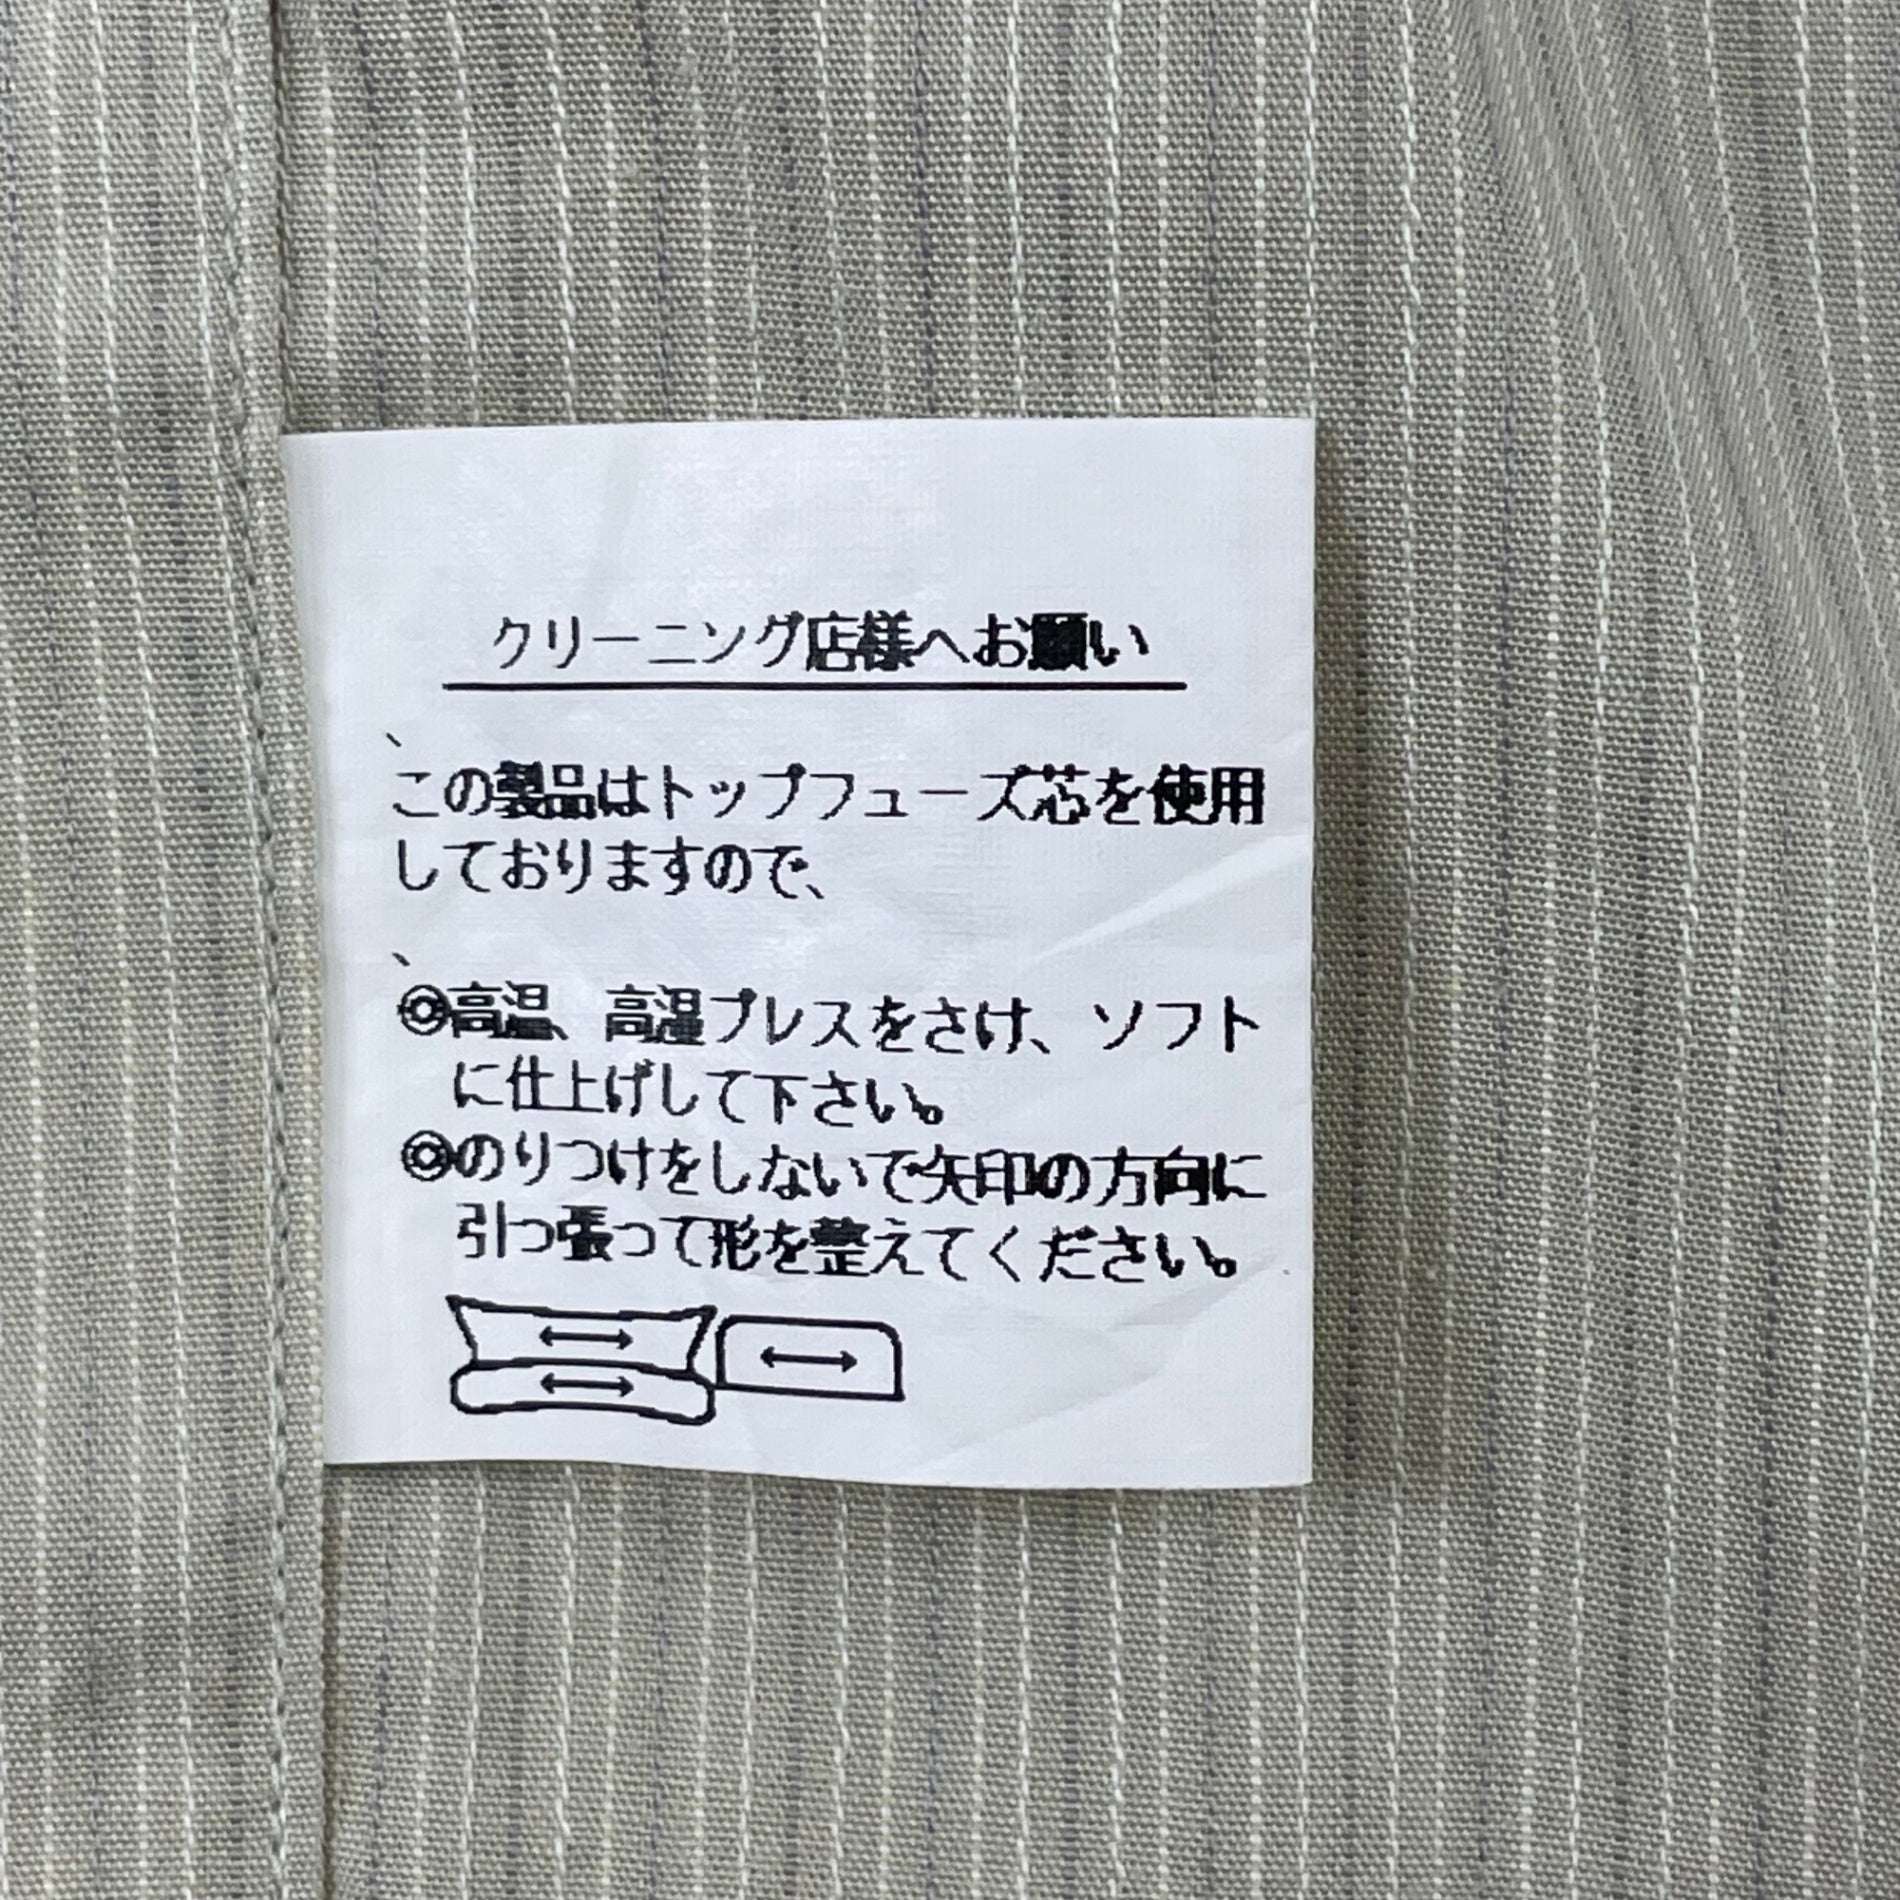 クリーニング店様へお願い
、
この製品はトップフューズ芯を使用
しておりますので、
、
◎高温、高湿プレスをさけ、ソフト
に仕上げして下さい。
◎のりつけをしないで矢印の方向に
引っ張って形を整えてください。